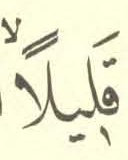 قَلِيلًاۙ